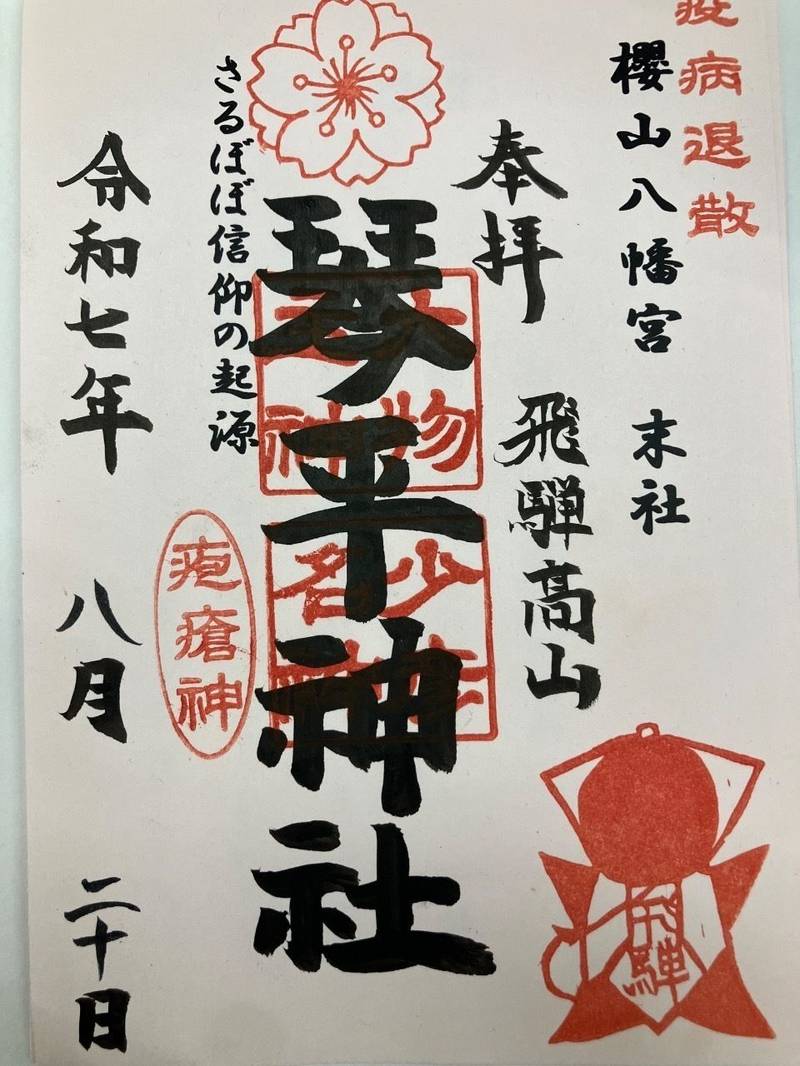 疫病退散
櫻山八幡宮 末社
奉拝 飛騨高山
飛騨
琴平神社
さるぼぼ信仰の起源
疱瘡神
令和七年 八月 二十日